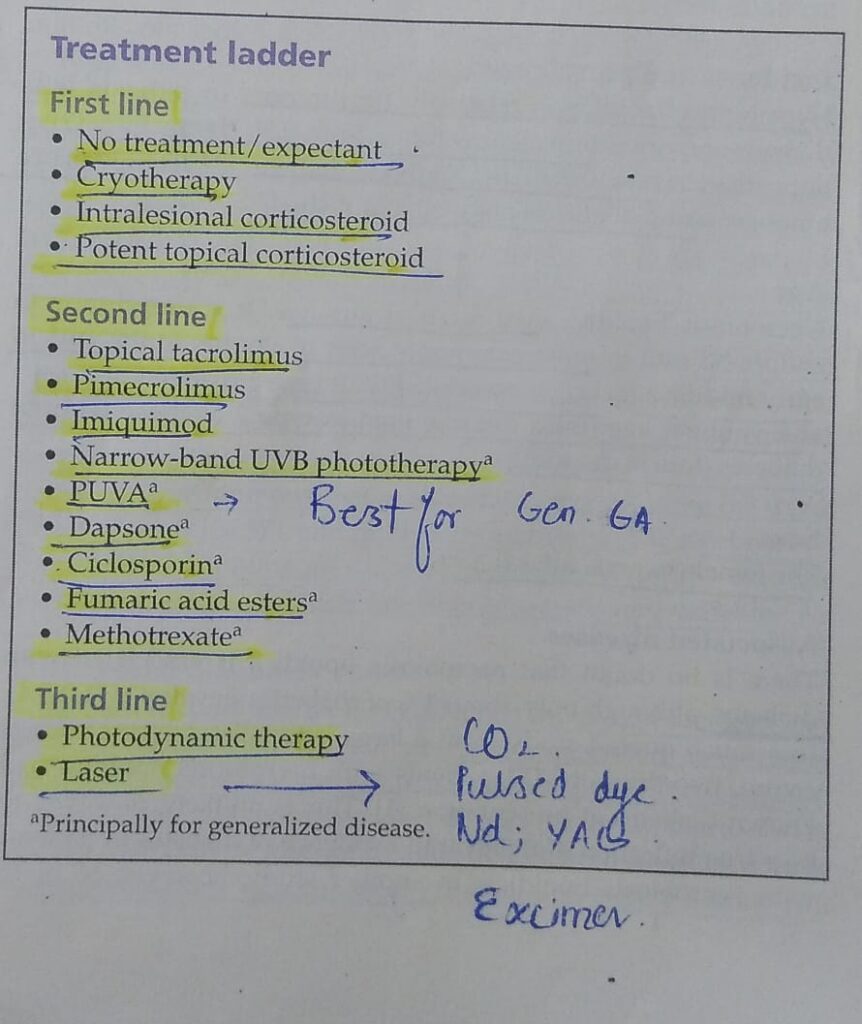 Treatment ladder
First line
• No treatment/expectant
• Cryotherapy
• Intralesional corticosteroid
• Potent topical corticosteroid
Second line
• Topical tacrolimus
• Pimecrolimus
• Imiquimod
• Narrow-band UVB phototherapyᵃ
• PUVAᵃ → Best for Gen. GA
• Dapsoneᵃ
• Ciclosporinᵃ
• Fumaric acid estersᵃ
• Methotrexateᵃ
Third line
• Photodynamic therapy CO2.
• Laser → Pulsed dye.
ᵃPrincipally for generalized disease. Nd; YAG.
Excimer.